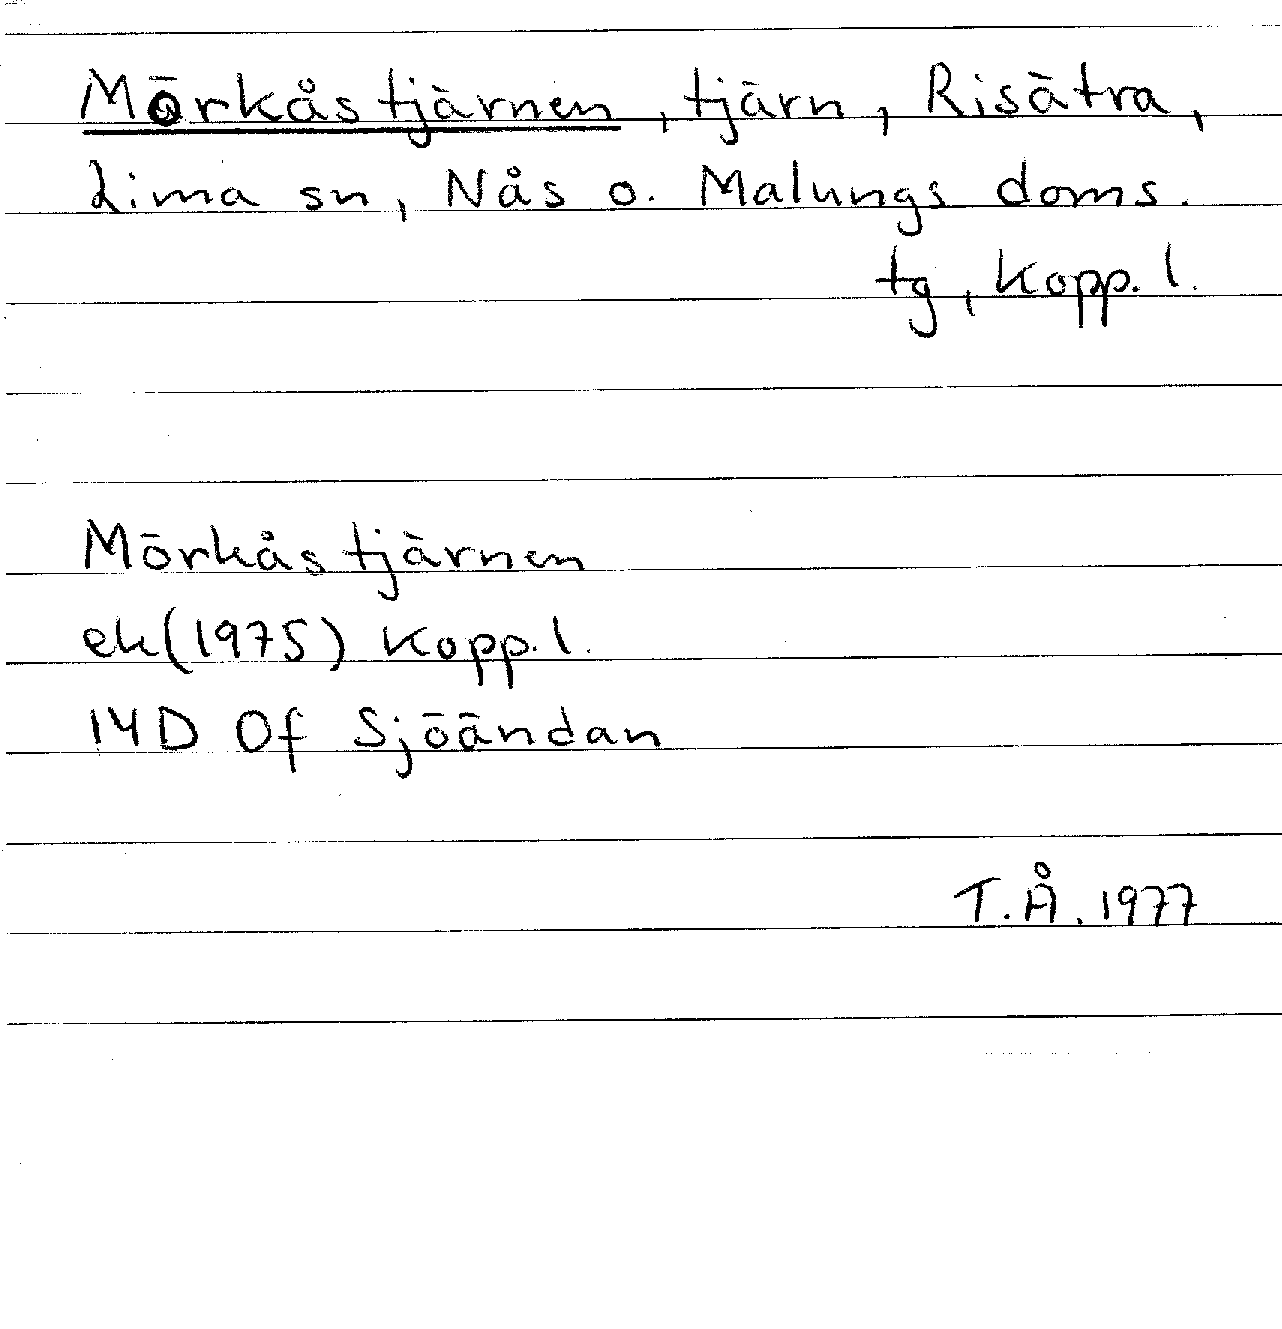 Mörkåstjärnen, tjärn, Risätra,
Lima sn, Nås o. Malungs doms.
tg, Kopp. l.
Mörkåstjärnen
ek (1975) Kopp. l.
14D 0f Sjöändan
T.Å. 1977